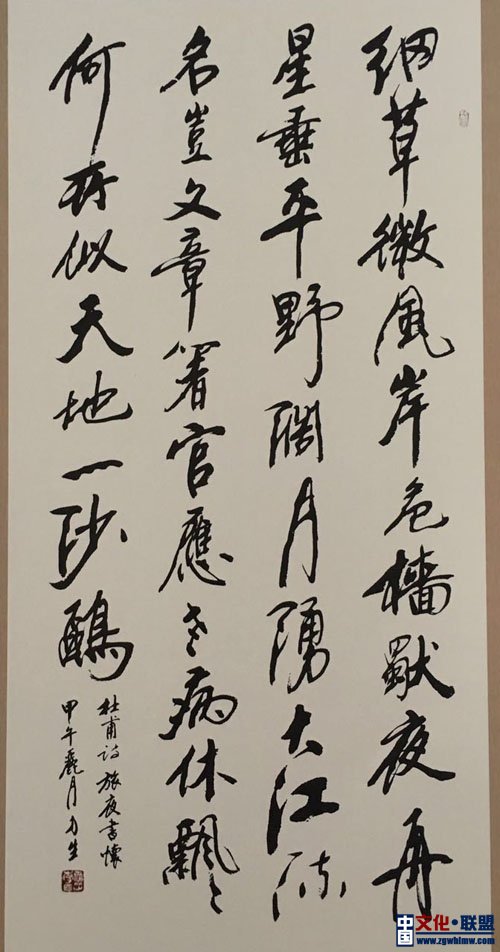 細草微風岸危檣獨夜舟
星垂平野闊月湧大江流
名豈文章箸官應老病休飄々
何所似天地一沙鷗
杜甫詩旅夜書懷
甲午月生
中国文化·联盟
www.zgwhlmw.com